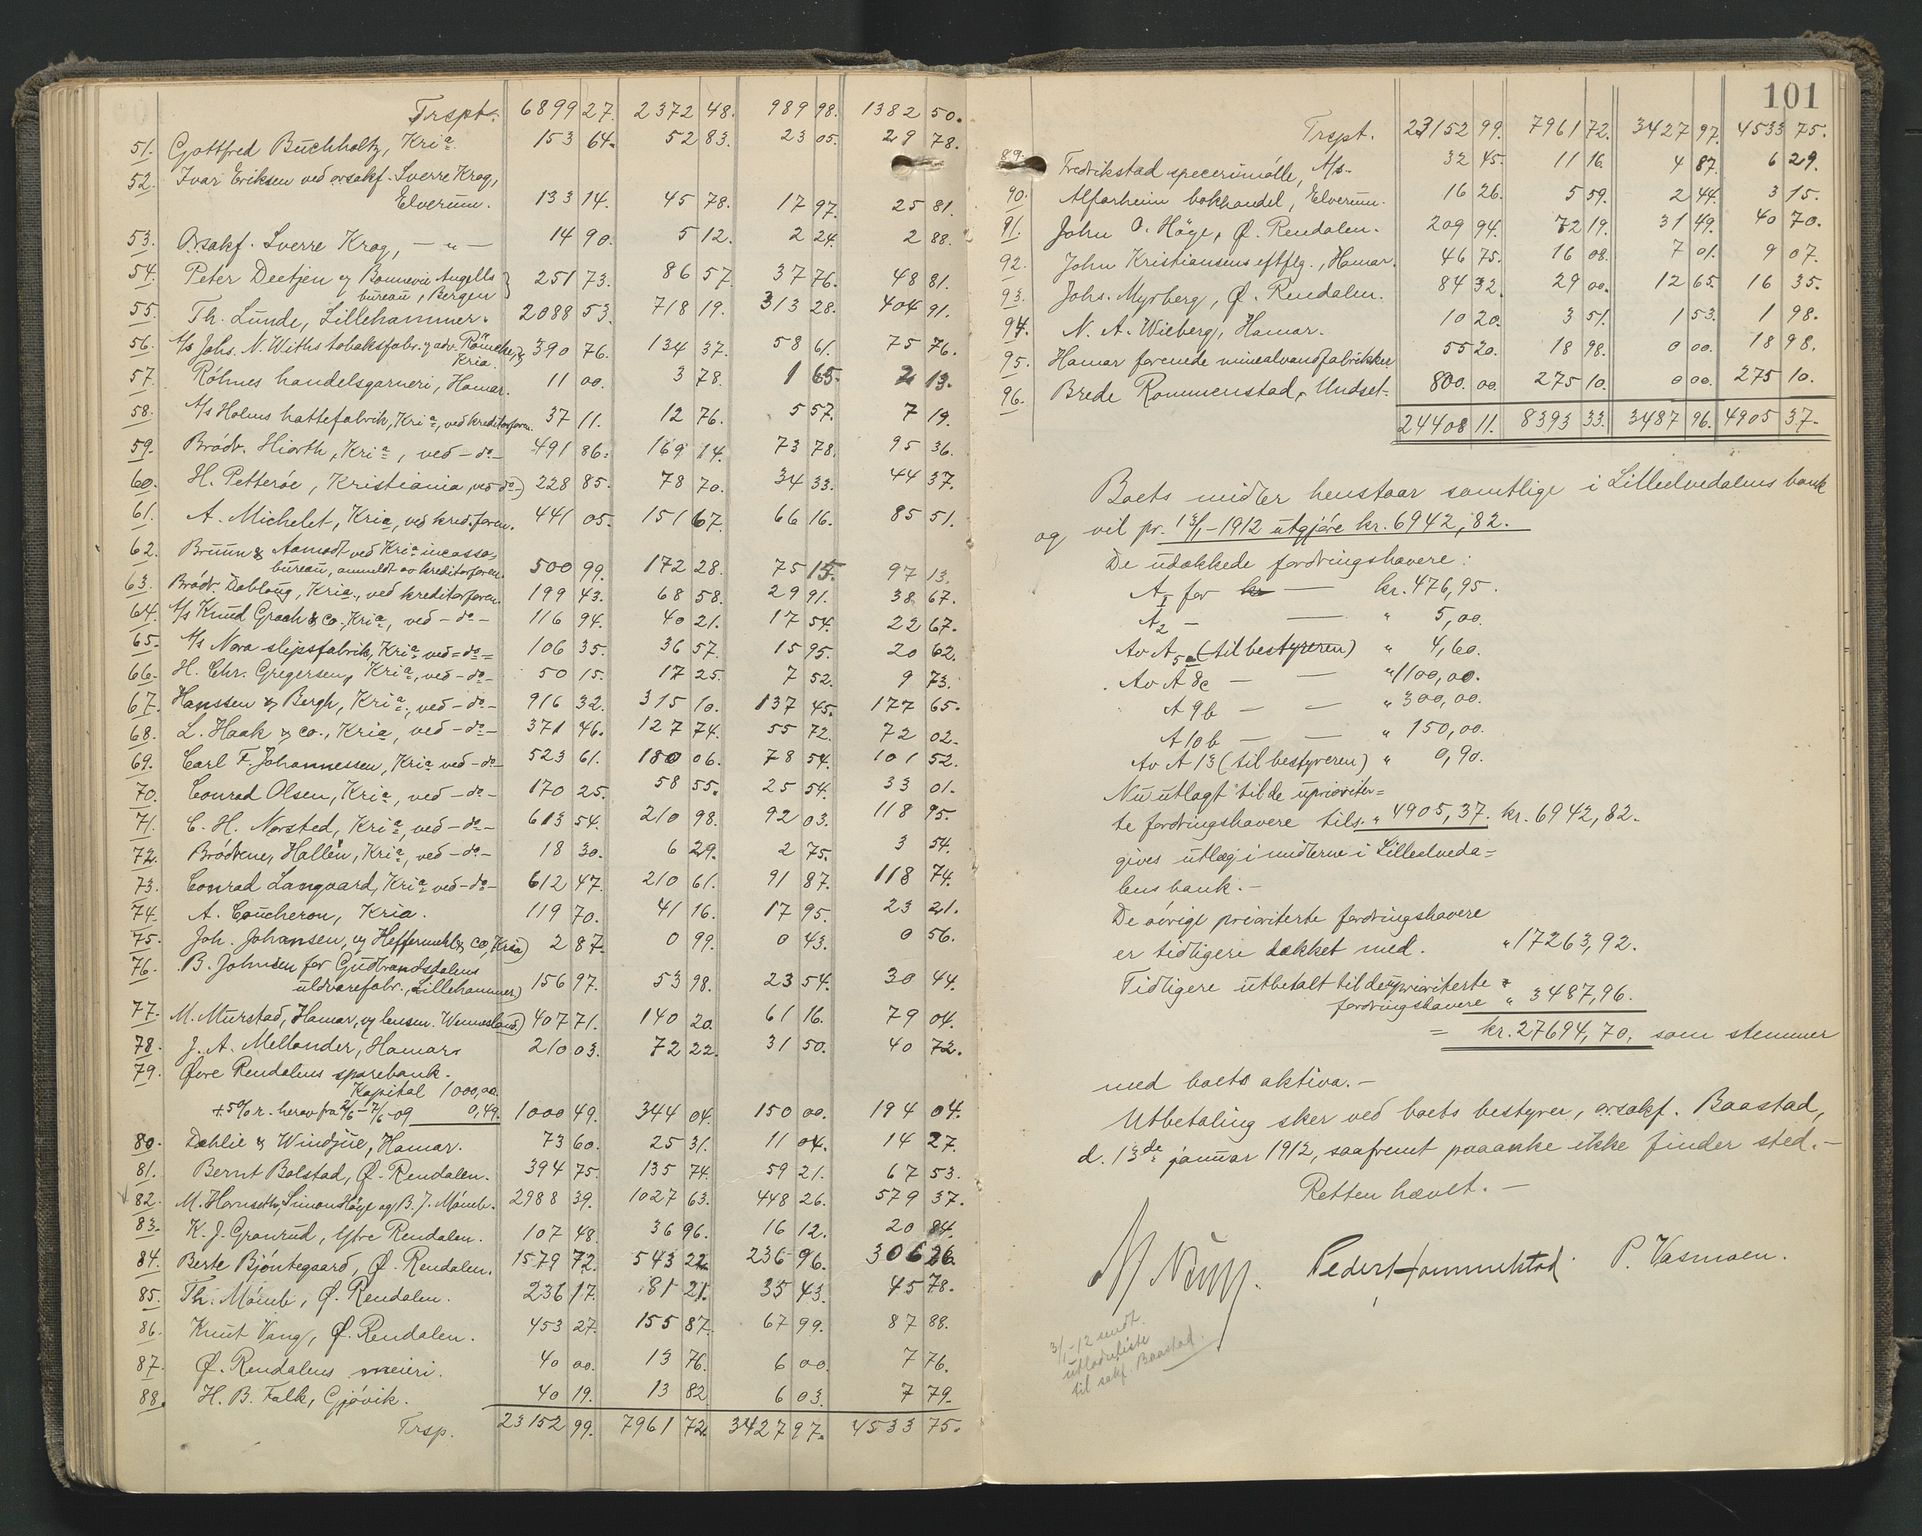 Trspt. 6899 27. 2372 48. 989 98. 1382 50.
51. Gottfred Buchholtz, Kria. 153 64. 52 83. 23 05. 29 78.
52. Ivar Eriksen ved orsakf. Sverre Krog,
Elverum. 133 14. 45 78. 17 97. 25 81.
53. Orsakf. Sverre Krog, — " — 14 90. 5 12. 2 24. 2 88.
54. Peter Deetjen og Bonnevie Angells
bureau, Bergen 251 73. 86 57. 37 76. 48 81.
55. Th. Lunde, Lillehammer. 2088 53. 718 19. 313 28. 404 91.
56. A/s Johs. N. Withs tobaksfabr. v adv. Römcke,
Kria. 390 76. 134 37. 58 61. 75 76.
57. Röhnes handelsgarneri, Hamar. 11 00. 3 78. 1 65. 2 13.
58. A/s Holms hattefabrik, Kria, ved kreditorforen. 37 11. 12 76. 5 57. 7 19.
59. Brödr. Hiorth, Kria, ved – do – 491 86. 169 14. 73 78. 95 36.
60. H. Petteröe, Kristiania, ved – do –) 228 85. 78 70. 34 33. 44 37.
61. A. Michelet, Kria, ved kred.foren. 441 05. 151 67. 66 16. 85 51.
62. Bruun & Aamodt ved Kria incasso-
bureau, anmeldt av kreditorforen. 500 99. 172 28. 75 15. 97 13.
63. Brödr. Dobloug, Kria., ved kreditorforen. 199 43. 68 58. 29 91. 38 67.
64. A/s Knud Graah & Co. Kria, ved – do – 116 94. 40 21. 17 54. 22 67.
65. A/s Nora slipsfabrik, Kria ved = do = 106 35. 36 57. 15 95. 20 62.
66. H. Chr. Gregersen, Kria, ved – do – 50 15. 17 25. 7 52. 9 73.
67. Hanssen & Bergh, Kria., ved – do – 916 32. 315 10. 137 45. 177 65.
68. L. Haak & co., Kria, ved – do – 371 46. 127 74. 55 72. 72 02.
69. Carl F. Johannessen, Kria ved – do – 523 61. 180 06. 78 54. 101 52.
70. Conrad Olsen, Kria, ved – do – 170 25. 58 55. 25 54. 33 01.
71. C. H. Norsted, Kria, ved – do – 613 54. 210 98. 92 03. 118 95.
72. Brödrene Hallén, Kria, ved – do – 18 30. 6 29. 2 75. 3 54.
73. Conrad Langaard, Kria ved – do – 612 47. 210 61. 91 87. 118 74.
74. A. Coucheron, Kria. 119 70. 41 16. 17 95. 23 21.
75. Joh. Johansen, v Heffermehl & Co, Kria) 2 87. 0 99. 0 43. 0 56.
76. B. Johnsen for Gudbrandsdalens
uldvarefabr., Lillehammer) 156 97. 53 98. 23 54. 30 44.
77. M. Murstad, Hamar, v lensm. Wennesland) 407 71. 140 20. 61 16. 79 04.
78. J. A. Mellander, Hamar. 210 03. 72 22. 31 50. 40 72.
79. Övre Rendalens sparebank.
Kapital 1000,00.
+ 5% r. herav fra 2/6 – 7/6 – 09 0,49. 1000 49. 344 04. 150 00. 194 04.
80. Dahlie & Windju, Hamar. 73 60. 25 31. 11 04. 14 27.
81. Bernt Bolstad, Ø. Rendalen. 394 75. 135 74. 59 21. 67 53.
82. M. Harnseth, Simon Höye og B. J. Mömb. 2988 39. 1027 63. 448 26. 579 37.
83. K. J. Granrud, Ytre Rendalen. 107 48. 36 96. 16 12. 20 84.
84. Berte Bjöntegaard, Ø. Rendalen. 1579 72. 543 22. 236 96. 306 26.
85. Th. Mömb, Ø. Rendalen. 236 17. 81 21. 35 43. 45 78.
86. Knut Vang, Ø. Rendalen. 453 27. 155 87. 67 99. 87 88.
87. Ø. Rendalens meieri. 40 00. 13 76. 6 00. 7 76.
88. H. B. Falk, Gjövik. 40 19. 13 82 6 03. 7 79.
Trsp. 23152 99. 7961 72. 3427 97. 4533 75.
101
Trspt. 23152 99. 7961 72. 3427 97. 4533 75.
89. Fredrikstad specerimølle, A/s. 32 45. 11 16. 4 87. 6 29.
90. Alfarheim bokhandel, Elverum. 16 26. 5 59. 2 44. 3 15.
91. John O. Höye, Ø. Rendalen. 209 94. 72 19. 31 49. 40 70.
92. John Kristiansens eftflg., Hamar. 46 75. 16 08. 7 01. 9 07.
93. Johs. Myrberg, Ø. Rendalen. 84 32. 29 00. 12 65. 16 35.
94. N. A. Wieberg, Hamar. 10 20. 3 51. 1 53. 1 98.
95. Hamar forenede mineralvandfabrikker 55 20. 18 98. 0 00. 18 98.
96. Brede Rommenstad, Undset. 800 00. 275 10. 0 00. 275 10.
24408 11. 8393 33. 3487 96. 4905 37.
Boets midler henstaar samtlige i Lilleelvedalens bank
og vil pr. 13/1-1912 utgjøre kr. 6942,82.
De udækkede fordringshavere:
A1 for — kr. 476,95.
A2 – — " 5,00.
Av A5a (til bestyreren) " 4,60.
Av A 8c — — " 1100,00.
A 9b — — " 300,00.
A 10b — — " 150,00.
Av A 13 (til bestyreren) " 0,90.
Nu utlagt til de uprioriter=
te fordringshavere tils. " 4905,37. kr. 6942,82.
gives utlæg i midlerne i Lilleelveda=
lens bank. –
De övrige prioriterte fordringshavere
er tidligere dækket med. " 17263,92.
Tidligere utbetalt til de uprioriterte
fordringshavere " 3487,96.
= kr. 27694,70, som stemmer
med boets aktiva. –
Utbetaling sker ved boets bestyrer, orsakf. Baastad,
d. 13de januar 1912, saafremt paaanke ikke finder sted. –
Retten hævet. –
Peder Hommelstad. P. Vasmoen.
3/1-12 sendt
utlodnliste
til sakf. Baastad.